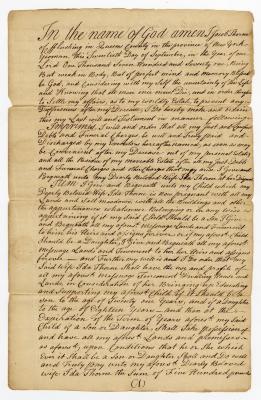 In the name of God amen I Jacob Thorne
of Flushing in Queens County in the province of New York
Yeoman This Twentieth Day of September in the Year of our
Lord One Thousand Seven Hundred and Seventy
Being But weak in Body, But of perfect mind and Memory
to God, and Considering with my Self the uncertainty of this Life
and Knowing that all men once must Die, and in order thereto
to Settle my affairs, as to my worldly Estate, to prevent any
Differences after my Decease I Do hereby make and
this my Last will and Testament in manner following
Imprimis, I will and order that all my just and
Debts and funeral Charges be well and Truly paid and
Discharged by my Executors hereafter named, as soon as may
be Convenient after my Decease, out of my personal Estate
and all the Residue of my moveable Estate after all my Just Debts
and Funeral Charges and other Charges that may arise I give and
Bequeath unto my Dearly Beloved Wife
Item I Give and Bequeath unto my Child which my
Dearly Beloved Wife Ida Thorne is Now pregnant with all my
Lands and all Buildings and other
the appurtenances whatsoever Belonging or in any wise
appertaining if my said Child Should be a Son I Give
and Bequeath all my aforesaid messuage Lands and Tenement
to him his Heirs and assigns forever
Should be a Daughter, I Give and Bequeath all my aforesd
messuage Lands and Tenement to her her Heirs and assigns
forever and Further my will is and I Do order that my
said Wife Ida Thorne Shall have the use and profits of
all my aforesd messuage Tenement Dwelling House and
Lands, in Consideration of her Bringing up Educating
and Supporting my aforesd Child if it Should be a
Son to the age of Twenty one Years, and if a Daughter
to the age of Eighteen Years and then at the
Expiration of the Term of Years aforesd my Said
Child if a Son or Daughter, Shall Take possession
and have all my aforesd Lands and
as aforesd upon Conditions that he or She which
Ever it Shall be a Son or Daughter Shall and Do well
and Truly Pay unto my aforesd Dearly Beloved
wife Ida Thorne the Sum of Two Hundred pounds
(1)